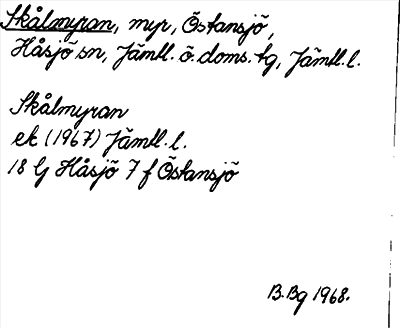 Skålmyran, myr, Östansjö,
Håsjö sn, Jämtl. ö. doms. tg, Jämtl. l.
Skålmyran
ek (1967) Jämtl. l.
18 G Håsjö 7 f Östansjö
B.Bg 1968.